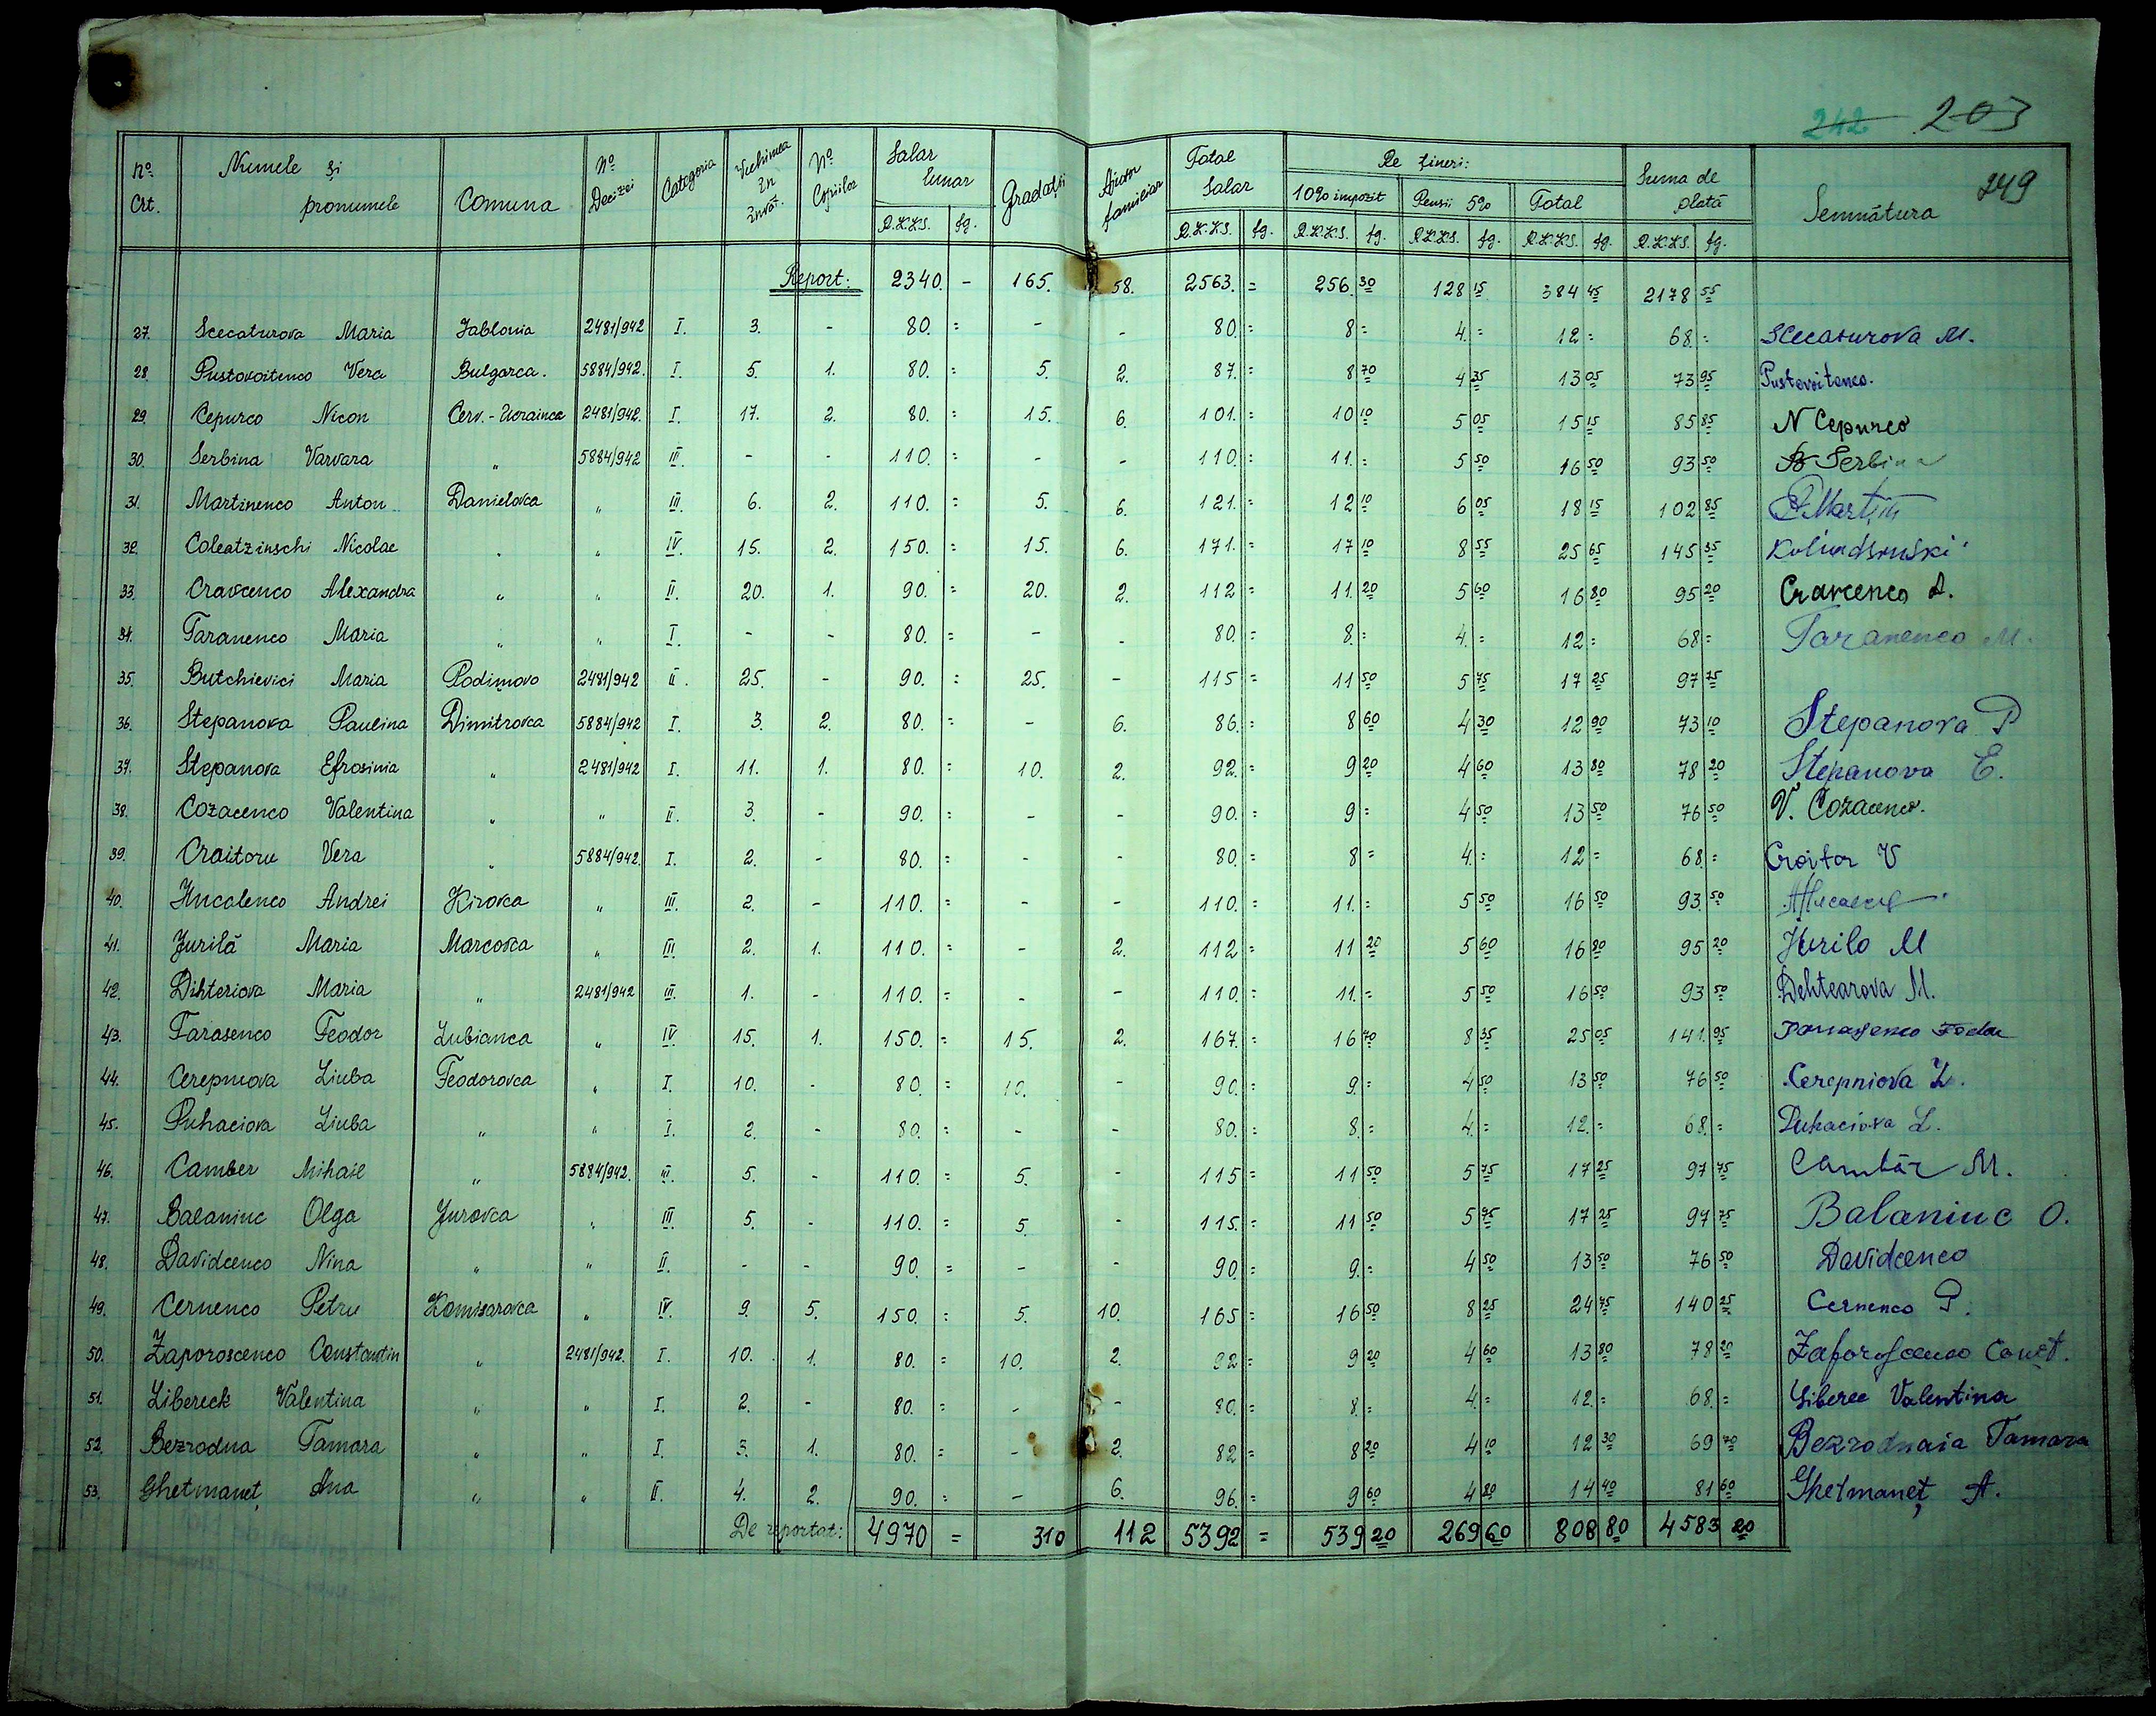 242 203
249
Nº Crt. Numele și pronumele Comuna Nº Decizei Categoria Vechimea În Învăț. Nº Copiilor Salar lunar Gradații Ajutor familiar Total Salar Re țineri: Suma de plată Semnătura
10% impozit Pensii 5% Total
R.K.K.S. fg. R.K.K.S. fg. R.K.K.S. fg. R.K.K.S. fg. R.K.K.S. fg. R.K.K.S. fg.
Report: 2340. - 165. 58. 2563. = 256.30 128 15 384 45 2178 55
27. Scecaturova Maria Jablonia 2481/942 I. 3. - 80. = - - 80. = 8 = 4. = 12 = 68. = Scecaturova M.
28. Pustovoitenco Vera Bulgarca. 5884/942. I. 5. 1. 80. = 5. 2. 87. = 8 70 4 35 13 05 73 95 Pustovoitenco.
29. Cepurco Nicon Cerv.-Ucrainca 2481/942. I. 17. 2. 80. = 15. 6. 101. = 10 10 5 05 15 15 85 85 N Cepurco
30. Serbina Varvara " 5884/942 III. - - 110. = - - 110. = 11. = 5 50 16 50 93 50 B Serbina
31. Martinenco Anton Danielovca " III. 6. 2. 110. = 5. 6. 121. = 12 10 6 05 18 15 102 85
32. Coleatzinschi Nicolae " " IV. 15. 2. 150. = 15. 6. 171. = 17 10 8 55 25 65 145 35
33. Cravcenco Alexandra " " II. 20. 1. 90. = 20. 2. 112 = 11. 20 5 60 16 80 95 20 Cravcenco A.
34. Taranenco Maria " " I. - - 80. = - - 80. = 8. = 4. = 12 = 68 = Taranenco M.
35. Butchievici Maria Podimovo 2481/942 II. 25. - 90. = 25. - 115 = 11 50 5 75 17 25 97 75
36. Stepanova Paulina Dimitrovca 5884/942 I. 3. 2. 80. = - 6. 86. = 8 60 4 30 12 90 73 10 Stepanova P
37. Stepanova Efrosinia " 2481/942 I. 11. 1. 80. = 10. 2. 92. = 9 20 4 60 13 80 78 20 Stepanova E.
38. Cozacenco Valentina " " II. 3. - 90. = - - 90. = 9 = 4 50 13 50 76 50 V. Cozacenco.
39. Craitoru Vera " 5884/942. I. 2. - 80. = - - 80. = 8 = 4. = 12 = 68. = Croitor V
40. Hucalenco Andrei Kirovca " III. 2. - 110. = - - 110. = 11. = 5 50 16 50 93. 50
41. Jurilă Maria Marcovca " III. 2. 1. 110. = - 2. 112 = 11 20 5 60 16 80 95 20 Jurilo M
42. Dihteriova Maria " 2481/942 III. 1. - 110. = - - 110. = 11. = 5 50 16 50 93 50 Dehtearova M.
43. Tarasenco Feodor Lubianca " IV. 15. 1. 150. = 15. 2. 167. = 16 70 8 35 25 05 141. 95
44. Cerepniova Liuba Feodorovca " I. 10. - 80. = 10. - 90. = 9. = 4 50 13 50 76 50 Cerepniova L.
45. Puhaciova Liuba " " I. 2. - 80. = - - 80. = 8. = 4. = 12. = 68. = Puhaciova L.
46. Camber Mihail " 5884/942. III. 5. - 110. = 5. - 115 = 11 50 5 75 17 25 97 75 Cambăr M.
47. Balaniuc Olga Jurovca " III. 5. - 110. = 5. - 115. = 11 50 5 75 17 25 97 75 Balaniuc O.
48. Davidcenco Nina " " II. - - 90. = - - 90. = 9. = 4 50 13 50 76 50 Davidcenco
49. Cernenco Petru Komisarovca " IV. 9. 5. 150. = 5. 10. 165 = 16 50 8 25 24 75 140 25 Cernenco P.
50. Zaporoscenco Constantin " 2481/942. I. 10. 1. 80. = 10. 2. 92 = 9 20 4 60 13 80 78 20 Zaporoscenco Const.
51. Libereck Valentina " " I. 2. - 80. = - - 80. = 8. = 4. = 12. = 68. = Liberec Valentina
52. Bezrodna Tamara " " I. 3. 1. 80. = - 2. 82 = 8 20 4 10 12 30 69 70 Bezrodnaia Tamara
53. Ghetmaneț Ana " " II. 4. 2. 90. = - 6. 96. = 9 60 4 80 14 40 81 60 Ghetmaneț A.
De reportat: 4970 = 310 112 5392 = 539 20 269 60 808 80 4583 20